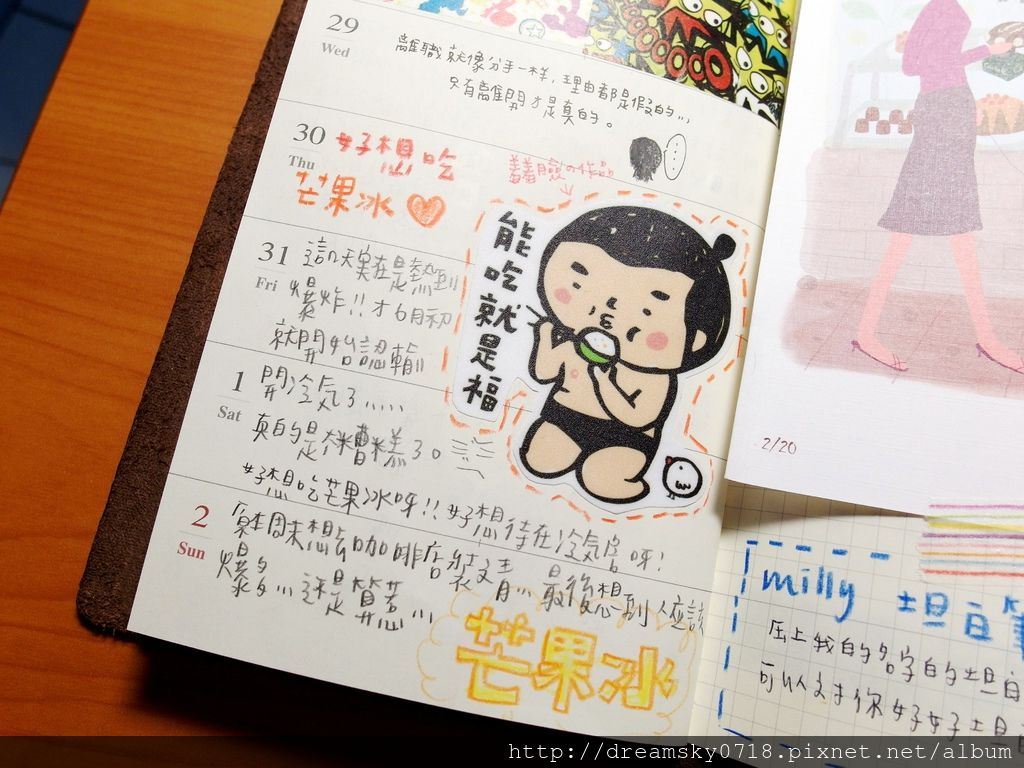 29
Wed
離職就像分手一樣,理由都是假的...,
只有離開才是真的。
30
Thu
好想吃
芒果冰
羞羞臉の作品
能吃就是福
31
Fri
這幾天實在是熱到
爆炸!!才6月初
就開始認輸
1
Sat
開冷氣了.....
真的是太糟糕了。
好想吃芒果冰呀!!好想待在冷氣房呀!
2
Sun
原本周末想去咖啡店裝文青... 最後想到人應該
爆多...還是算惹...
芒果冰
2/20
milly 坦白筆
压上我的名字的坦白
可以支持你好好坦白
http://dreamsky0718.pixnet.net/album